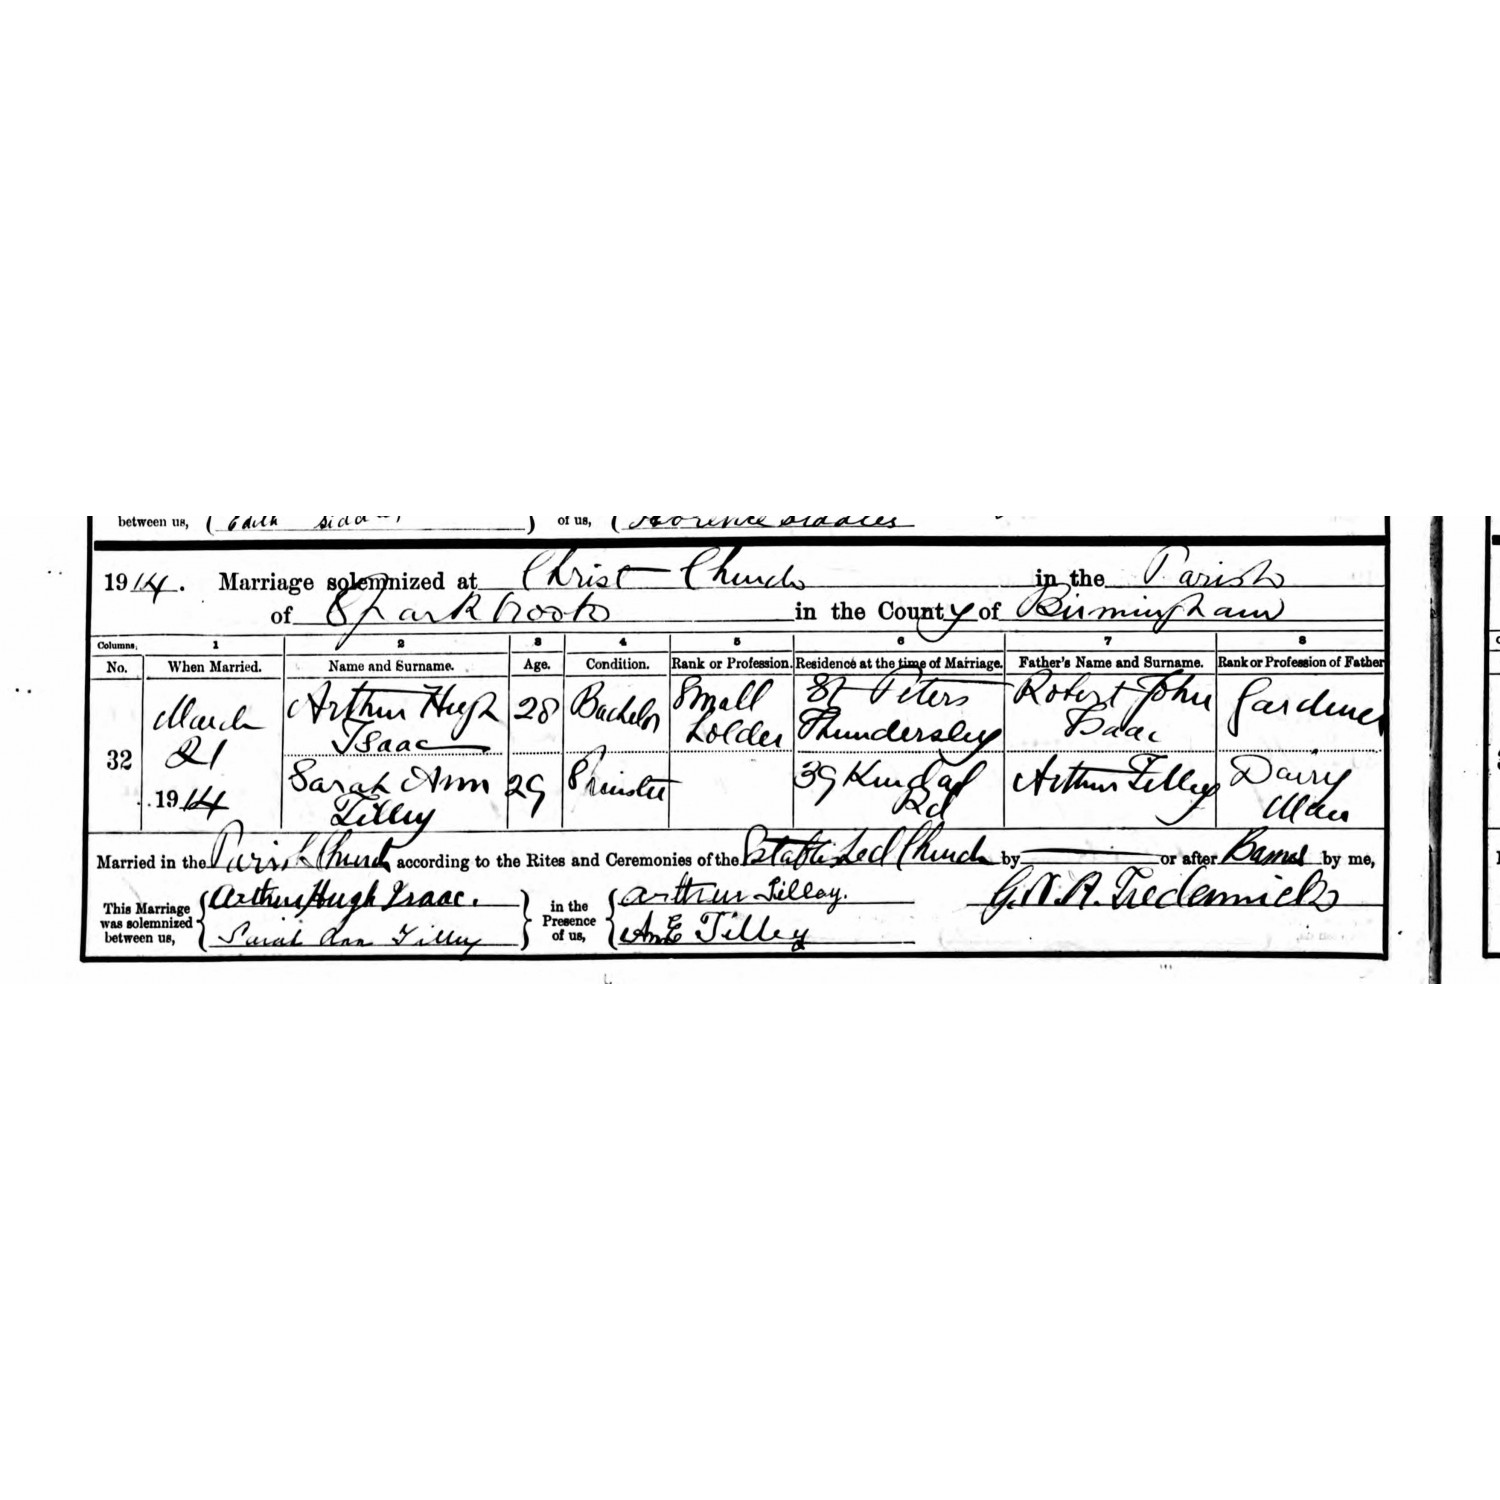 between us,
of us,
1914. Marriage solemnized at Christ Church in the Parish
of Sparkbrook in the County of Birmingham
Columns, 1 2 3 4 5 6 7 8
No. When Married. Name and Surname. Age. Condition. Rank or Profession. Residence at the time of Marriage. Father's Name and Surname. Rank or Profession of Father
March Arthur Hugh 28 Bachelor Small St Peters Robert John Gardener
21 Isaac holder Thundersley Isaac
32
1914 Sarah Ann 29 Spinster 39 Rd Arthur Tilley Dairy
Tilley Man
Married in the Parish Church according to the Rites and Ceremonies of the Established Church by or after Banns by me,
This Marriage was solemnized between us, Arthur Hugh Isaac. in the Presence of us, Arthur Tilley.
Sarah Ann Tilley Tilley